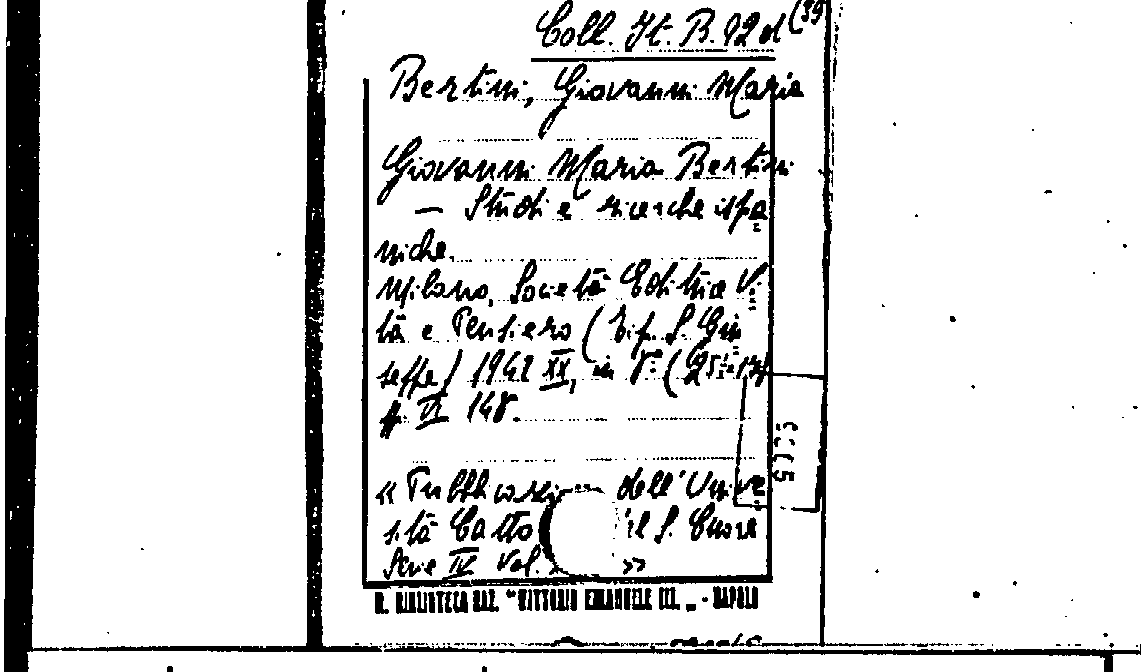 Coll. It. B. 92 d (39
Bertini, Giovanni Maria
Giovanni Maria Bertini
— Studi e ricerche ispa
niche.
Milano, Società Editrice Vi
ta e Pensiero (Tip. S. Giu
seppe) 1942 XX, in 8° (25
p. VI 148.
« Pubblicazi dell'Unive
sità Catto il S. Cuore
Serie IV Vol. »
R. BIBLIOTECA NAZ. "VITTORIO EMANUELE III. „ - NAPOLI